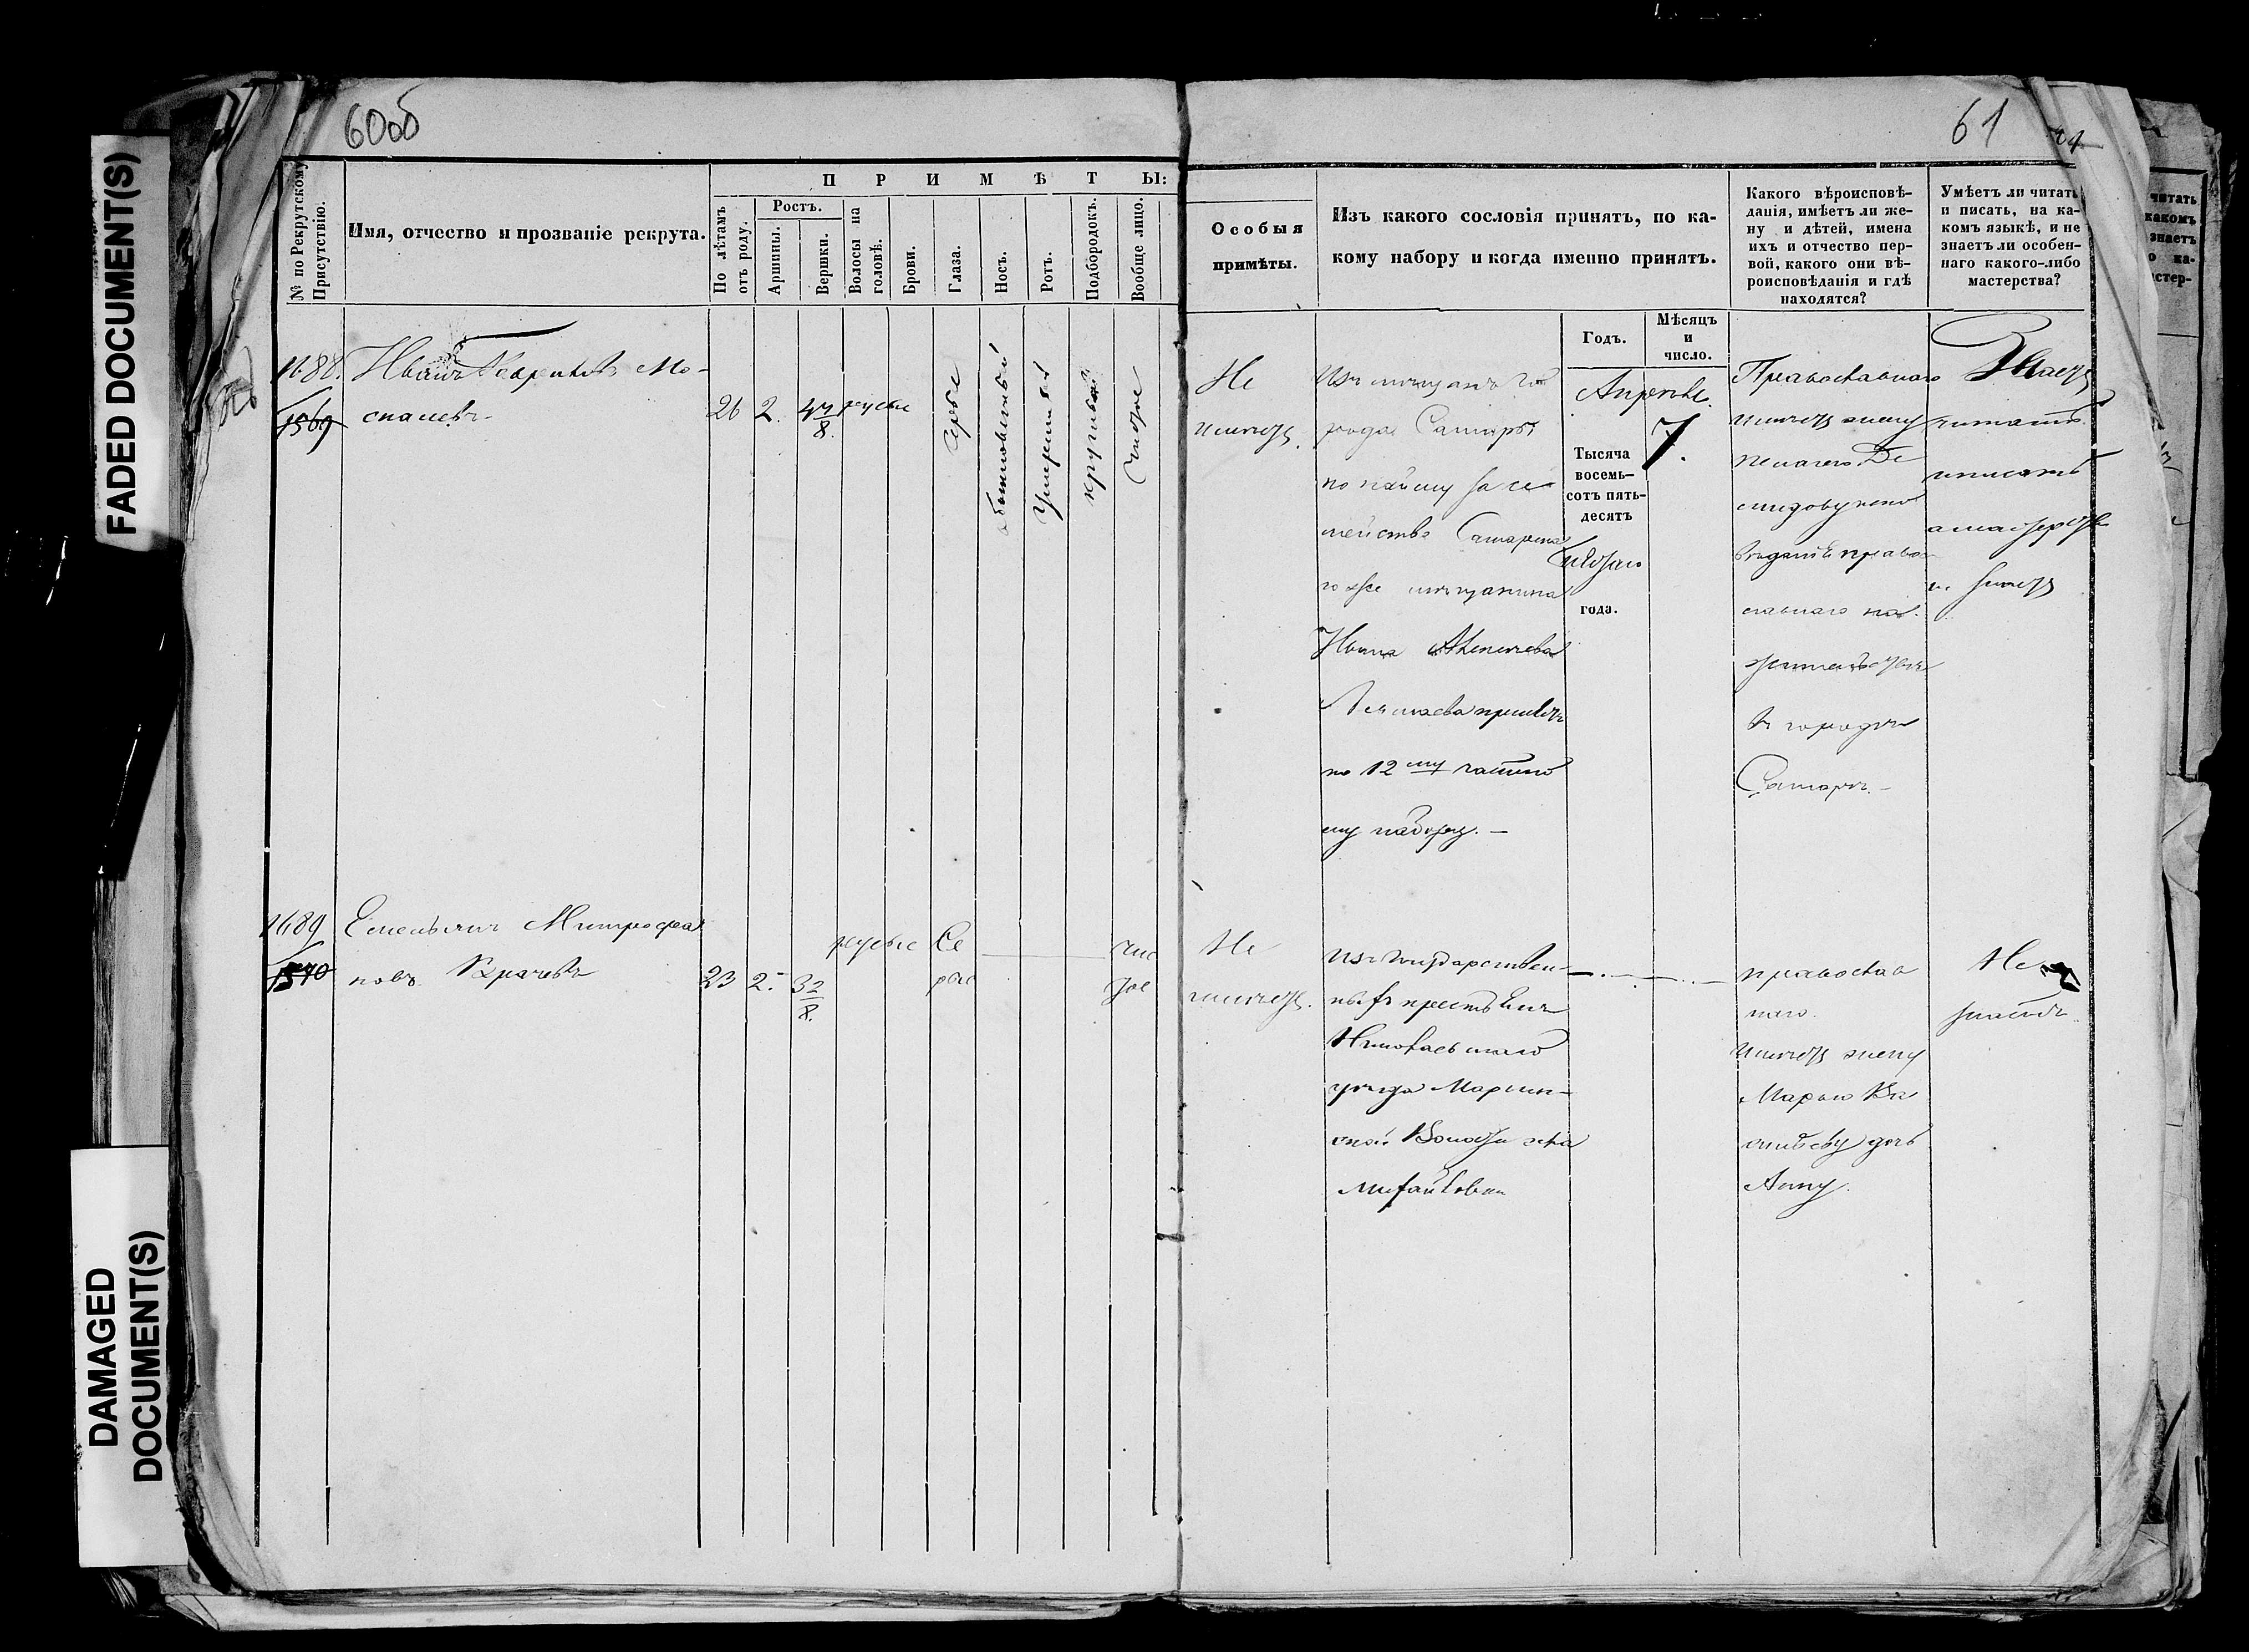 60об
61
FADED DOCUMENT(S)
DAMAGED
DOCUMENT(S)
№ по Рекрутскому
Присутствію.
Имя, отчество и прозваніе рекрута.
ПРИМѢТЫ:
По лѣтамъ
отъ роду.
Ростъ.
Аршины.
Вершки.
Волосы на
головѣ.
Брови.
Глаза.
Носъ.
Ротъ.
Подбородокъ.
Вообще лицо.
Особыя
примѣты.
Изъ какого сословія принятъ, по ка-
кому набору и когда именно принятъ.
Годъ.
Мѣсяцъ
и
число.
Какого вѣроисповѣ-
данія, имѣетъ ли же-
ну и дѣтей, имена
ихъ и отчество пер-
вой, какого они вѣ-
роисповѣданія и гдѣ
находятся?
Умѣетъ ли читать
и писать, на ка-
комъ языкѣ, и не
знаетъ ли особен-
наго какого-либо
мастерства?
1688.
1569
Иванъ Карповъ Мо-
26
2.
4 7/8.
русые
серые
обыкновенный
умеренный
круглый
чистое
Не
имеетъ.
изъ мещанъ го
рода Самары
по найму за се-
мейство Самарска
го же мещанина
Ивана
принятъ
по 12му частно
му набору. —
Апреля
7.
Тысяча
восемь-
сотъ пять-
десятъ
года.
Православнаго
имеетъ жену
Пелагею Де
мидову
вѣданія право-
славнаго
жительствъ
въ городе
Самаре. —
Знаетъ
читать
и писать
а мастерства
не имеетъ
1689
1570
Емельянъ Митрофа
новъ
23
2.
3 2/8.
русые
Се
рые
чис
тое
Не
имеетъ.
изъ государствен-
ныхъ крестьянъ
Николаевскаго
уезда Марьин-
ской Волости села
Михайловки
православ
наго
имеетъ жену
Марью Ва
сильеву дочь
Анну.
Не
знаетъ